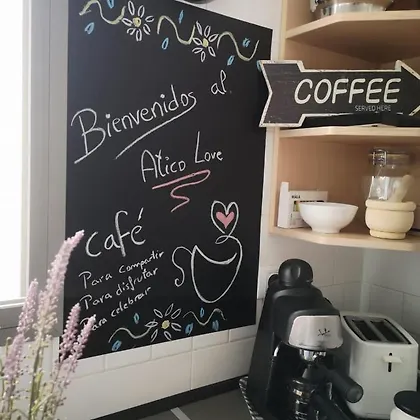 Bienvenidos al
Atico Love
Café
Para compartir
Para disfrutar
Para celebrar
COFFEE
SERVED HERE